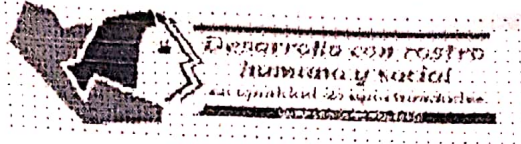 Desarrollo con rostro
humano y social
en igualdad de oportunidades